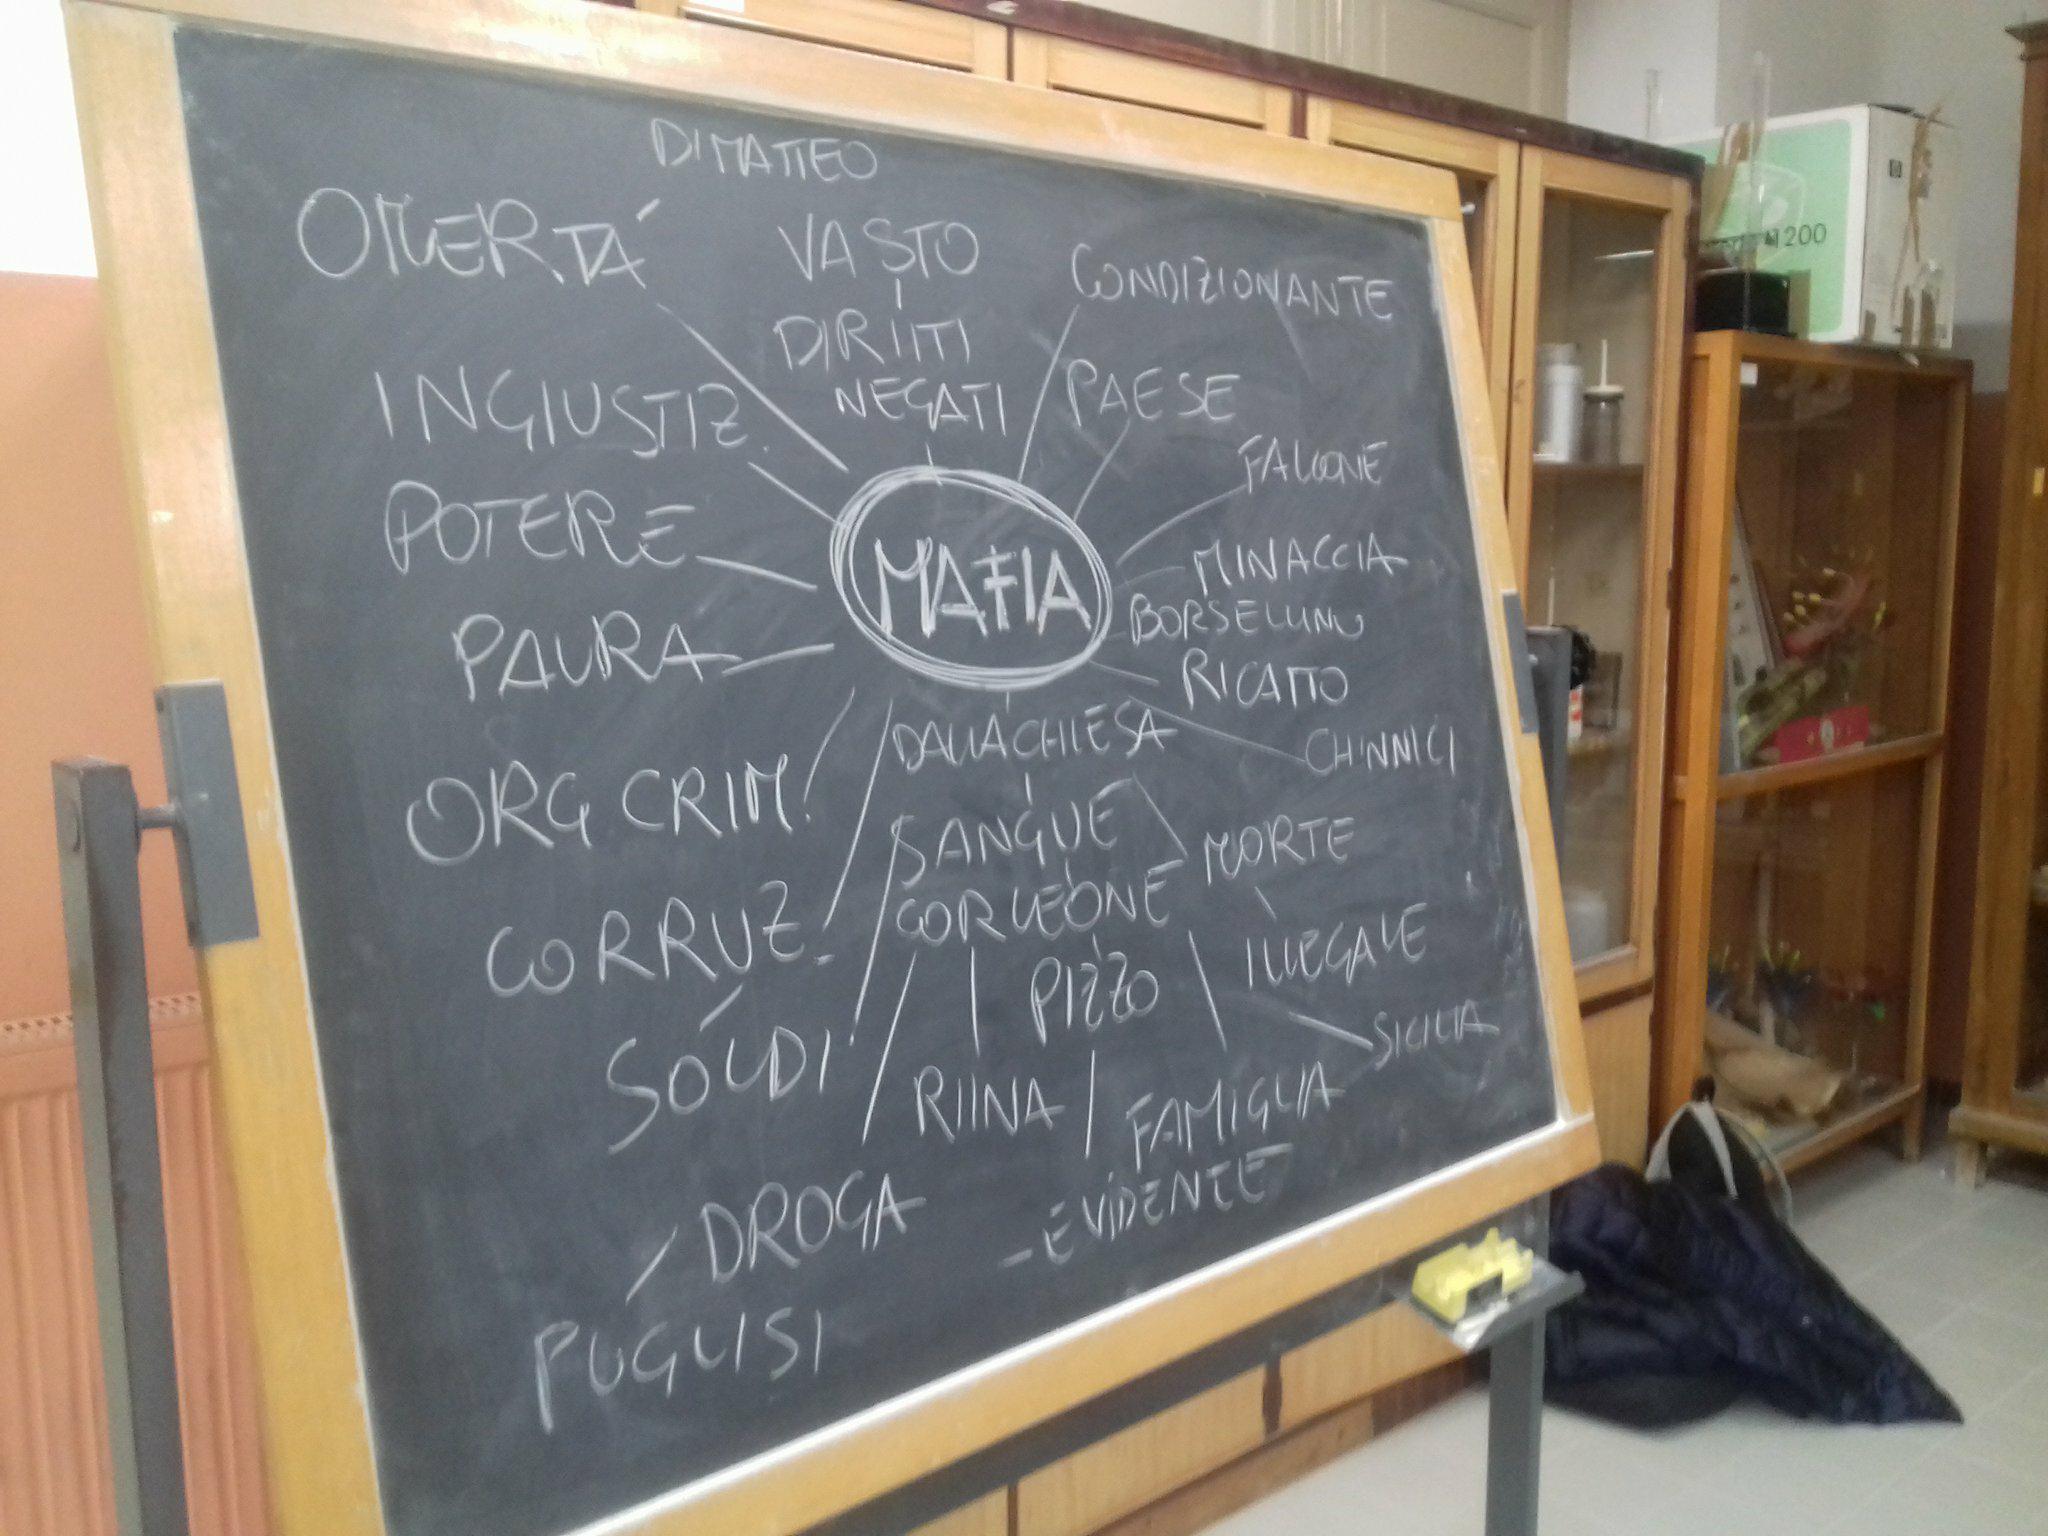 DI MATTEO
OMERTÁ
VASTO
CONDIZIONANTE
DIRITTI
NEGATI
PAESE
INGIUSTIZ.
FALCONE
POTERE
MAFIA
MINACCIA
BORSELLINO
PAURA
RICATTO
DALLA CHIESA
CHINNICI
ORG CRIM.
SANGUE
MORTE
CORLEONE
CORRUZ.
ILLEGALE
PIZZO
SICILIA
SOLDI
RIINA
FAMIGLIA
DROGA
- EVIDENTE
PUGLISI
hp
1200